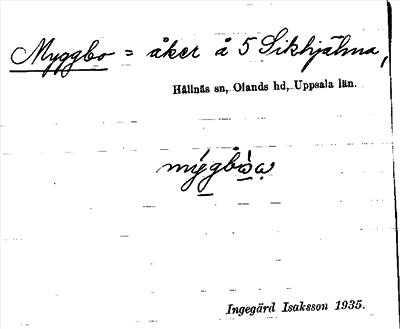 Myggbo = åker å 5 Sikhjälma,
Hållnäs sn, Olands hd, Uppsala län.
Ingegärd Isaksson 1935.